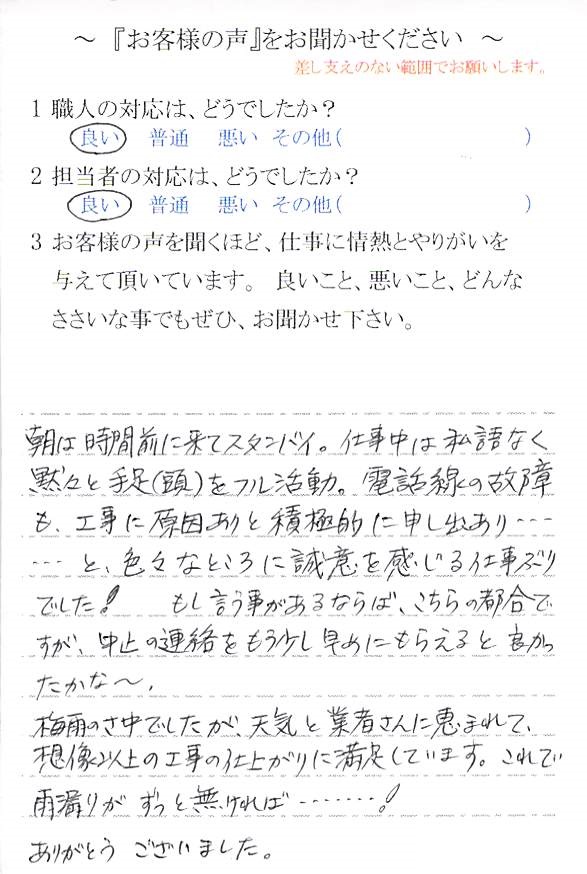 ～ 『お客様の声』をお聞かせください ～
差し支えのない範囲でお願いします。
1 職人の対応は、どうでしたか？
良い 普通 悪い その他( )
2 担当者の対応は、どうでしたか？
良い 普通 悪い その他( )
3 お客様の声を聞くほど、仕事に情熱とやりがいを
与えて頂いています。 良いこと、悪いこと、どんな
ささいな事でもぜひ、お聞かせ下さい。
朝は時間前に来てスタンバイ。仕事中は私語なく
黙々と手足(頭)をフル活動。電話線の故障
も、工事に原因ありと積極的に申し出あり‥‥
‥‥と、色々なところに誠意を感じる仕事ぶり
でした! もし言う事があるならば、こちらの都合で
すが、中止の連絡をもう少し早めにもらえると良かっ
たかな～。
梅雨のさ中でしたが、天気と業者さんに恵まれて、
想像以上の工事の仕上がりに満足しています。これで
雨漏りがずっと無ければ‥‥‥‥!
ありがとうございました。